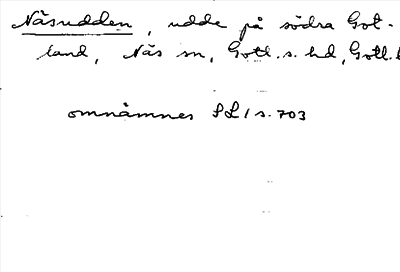 Näsudden, udde på södra Got-
land, Näs sn, Gotl. s. hd, Gotl. l
omnämnes SL 1 s. 703